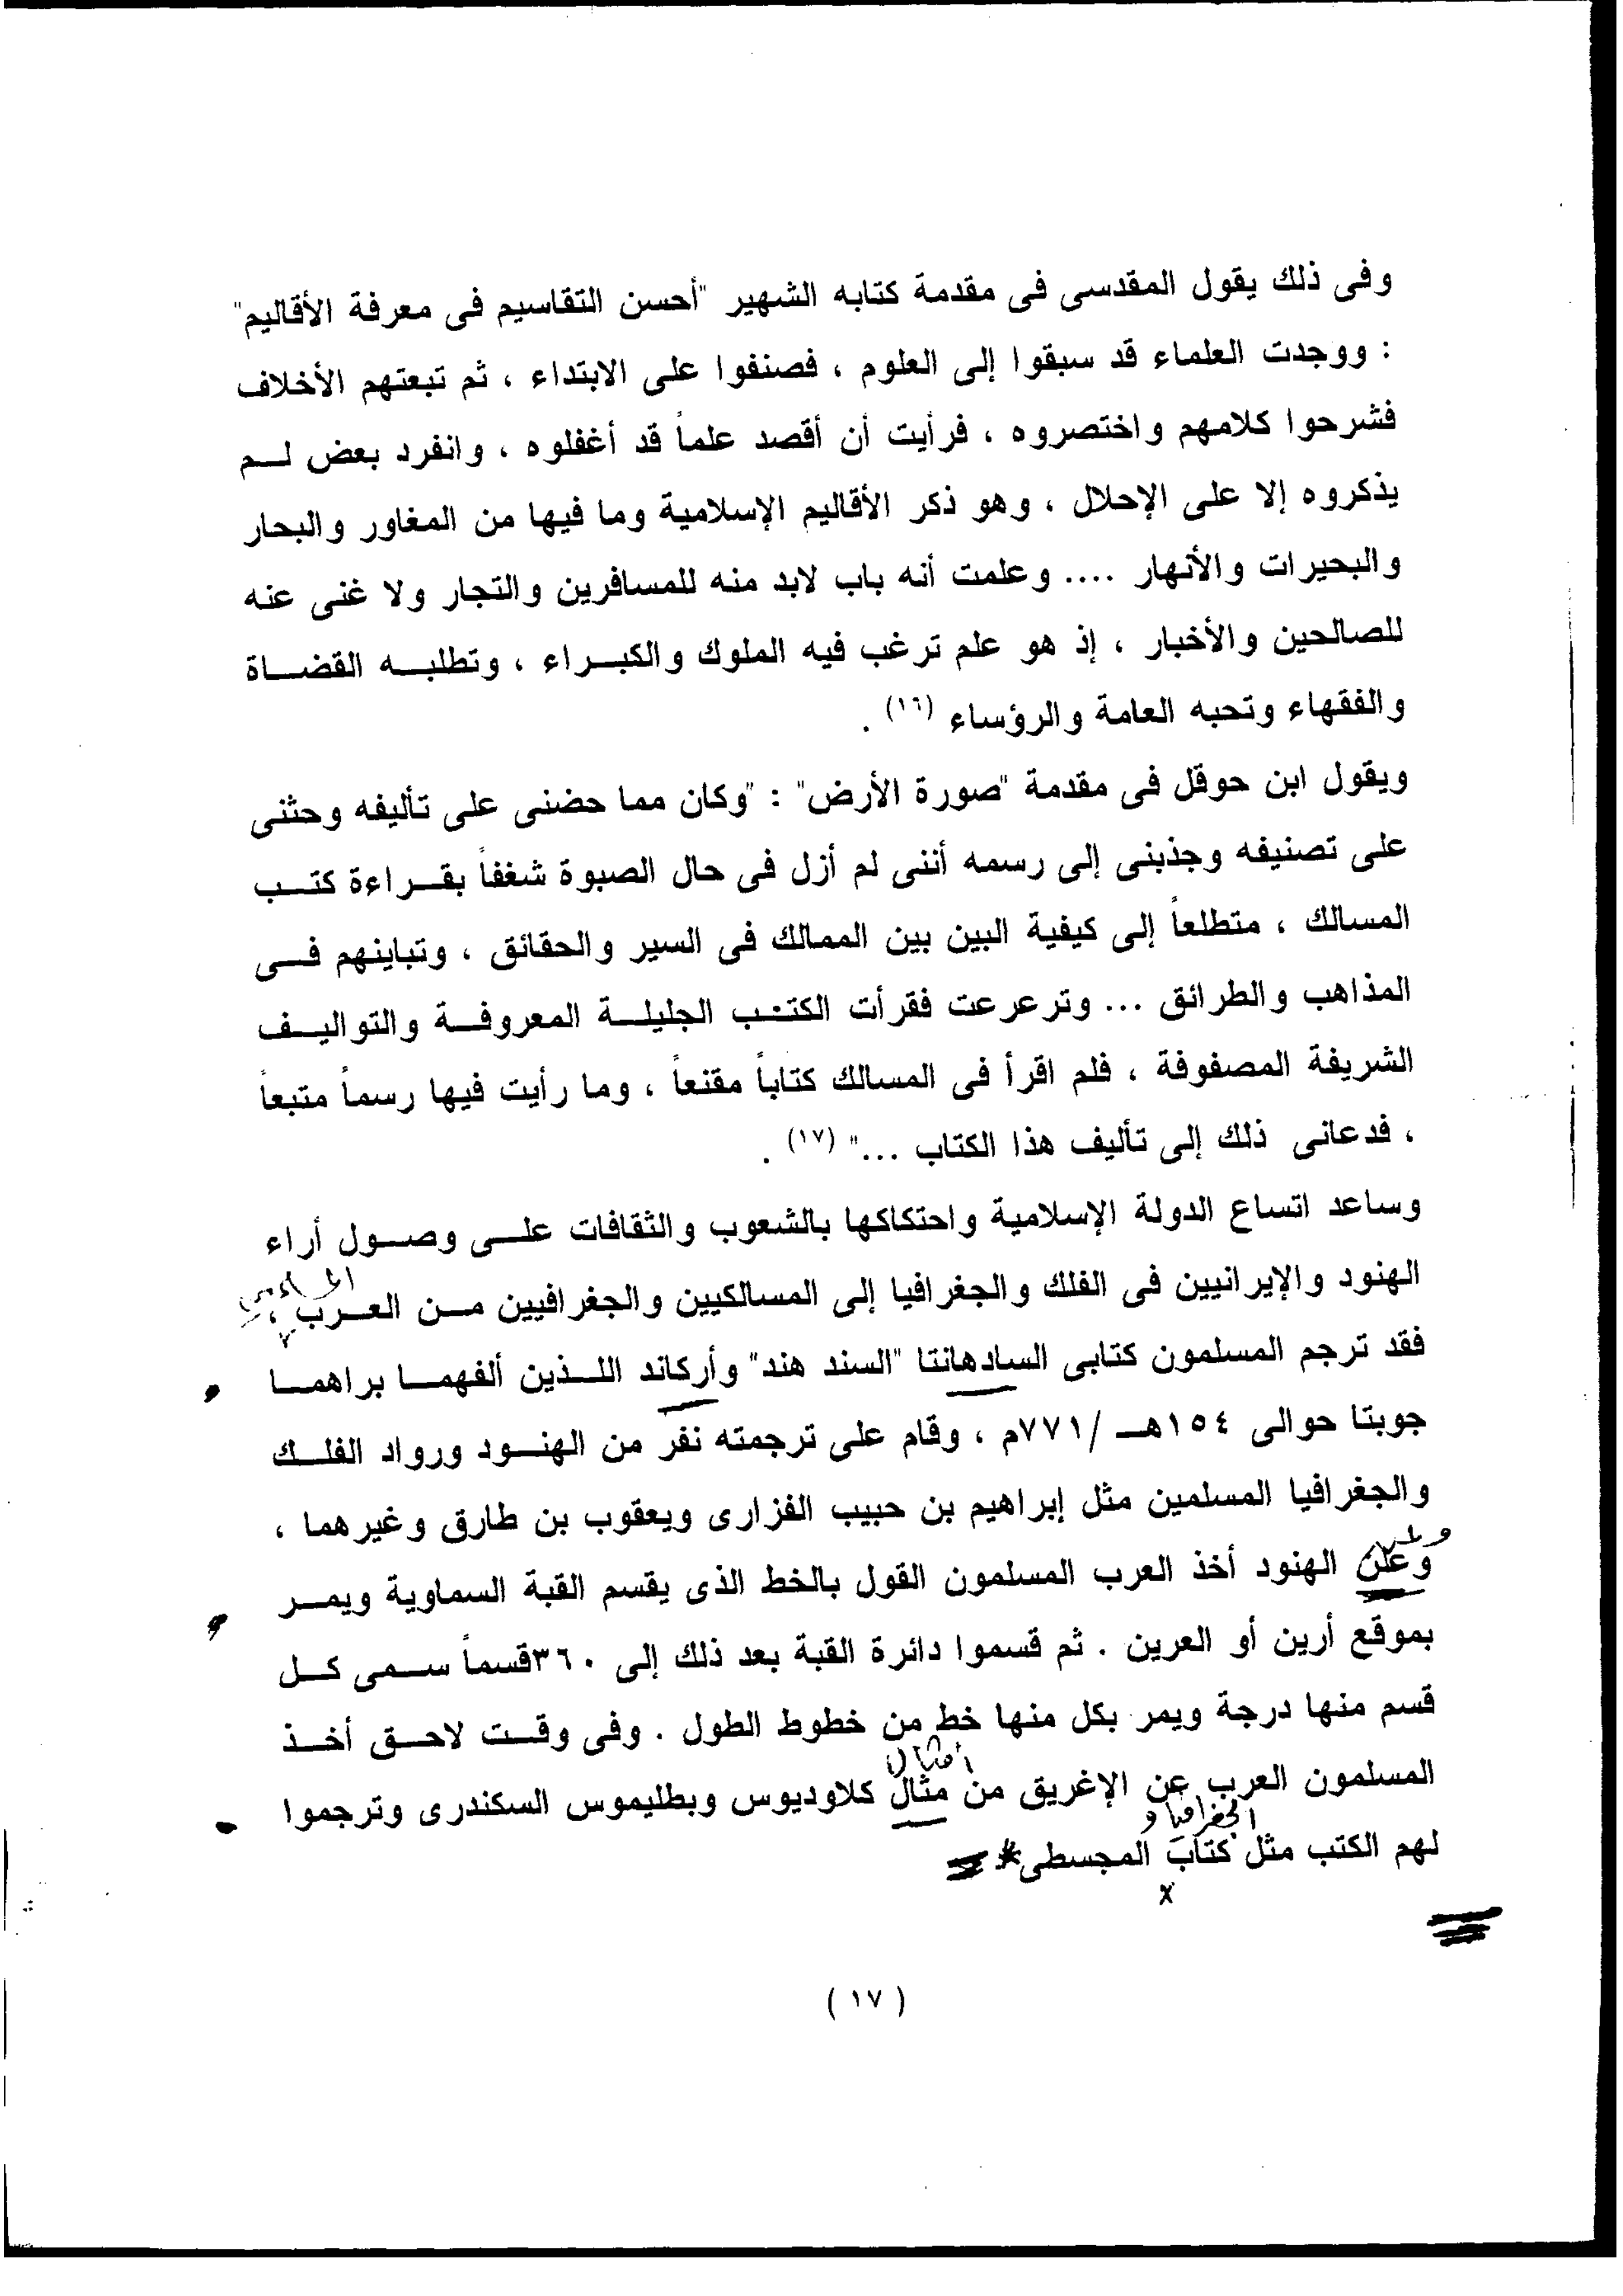 وفى ذلك يقول المقدسى فى مقدمة كتابه الشهير "أحسن التقاسيم فى معرفة الأقاليم"
: ووجدت العلماء قد سبقوا إلى العلوم ، فصنفوا على الابتداء ، ثم تبعتهم الأخلاف
فشرحوا كلامهم واختصروه ، فرأيت أن أقصد علماً قد أغفلوه ، وانفرد بعض لـم
يذكروه إلا على الإحلال ، وهو ذكر الأقاليم الإسلامية وما فيها من المغاور والبحار
والبحيرات والأنهار .... وعلمت أنه باب لابد منه للمسافرين والتجار ولا غنى عنه
للصالحين والأخبار ، إذ هو علم ترغب فيه الملوك والكبـراء ، وتطلبـه القضـاة
والفقهاء وتحبه العامة والرؤساء (١٦) .
ويقول ابن حوقل فى مقدمة "صورة الأرض" : "وكان مما حضنى على تأليفه وحثنى
على تصنيفه وجذبنى إلى رسمه أننى لم أزل فى حال الصبوة شغفاً بقـراءة كتـب
المسالك ، متطلعاً إلى كيفية البين بين الممالك فى السير والحقائق ، وتباينهم فـى
المذاهب والطرائق ... وترعرعت فقرأت الكتب الجليلـة المعروفـة والتواليـف
الشريفة المصفوفة ، فلم اقرأ فى المسالك كتاباً مقنعاً ، وما رأيت فيها رسماً متبعاً
، فدعانى ذلك إلى تأليف هذا الكتاب ..." (١٧) .
وساعد اتساع الدولة الإسلامية واحتكاكها بالشعوب والثقافات علـى وصـول أراء
الهنود والإيرانيين فى الفلك والجغرافيا إلى المسالكيين والجغرافيين مـن العـرب ،
فقد ترجم المسلمون كتابى السادهانتا "السند هند" وأركاند اللـذين ألفهمـا براهمـا
جوبتا حوالى ١٥٤هـ /٧٧١م ، وقام على ترجمته نفر من الهنـود ورواد الفلـك
والجغرافيا المسلمين مثل إبراهيم بن حبيب الفزارى ويعقوب بن طارق وغيرهما ،
وعلن الهنود أخذ العرب المسلمون القول بالخط الذى يقسم القبة السماوية ويمـر
بموقع أرين أو العرين . ثم قسموا دائرة القبة بعد ذلك إلى ٣٦٠قسماً سـمى كـل
قسم منها درجة ويمر بكل منها خط من خطوط الطول . وفى وقـت لاحـق أخـذ
أمثال
المسلمون العرب عن الإغريق من مثال كلاوديوس وبطليموس السكندرى وترجموا
الجغرافيا و
لهم الكتب مثل كتاب المجسطى*
x
( ١٧ )